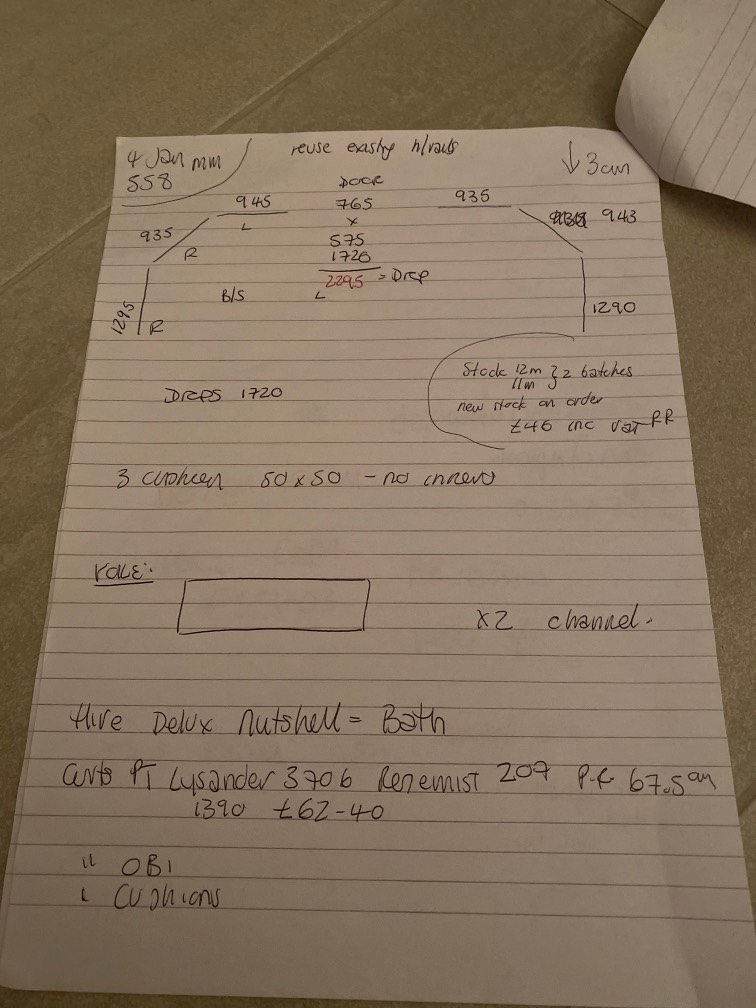 4 Jan mm
558
reuse h/rails
↓ 3cm
945
L
DOOR
765
x
575
1720
2295 = Drop
L
935
943
935
R
1295
R
B/S
1290
Drops 1720
Stock 12m } 2 batches
11m
new stock on order
£46 inc VAT RR
3 cushion 50 x 50 - no inners
x2 channel.
Hive Delux Nutshell = Bath
PT Lysander 3706 207 P.R 67.5cm
1390 £62-40
" OBI
" Cushions